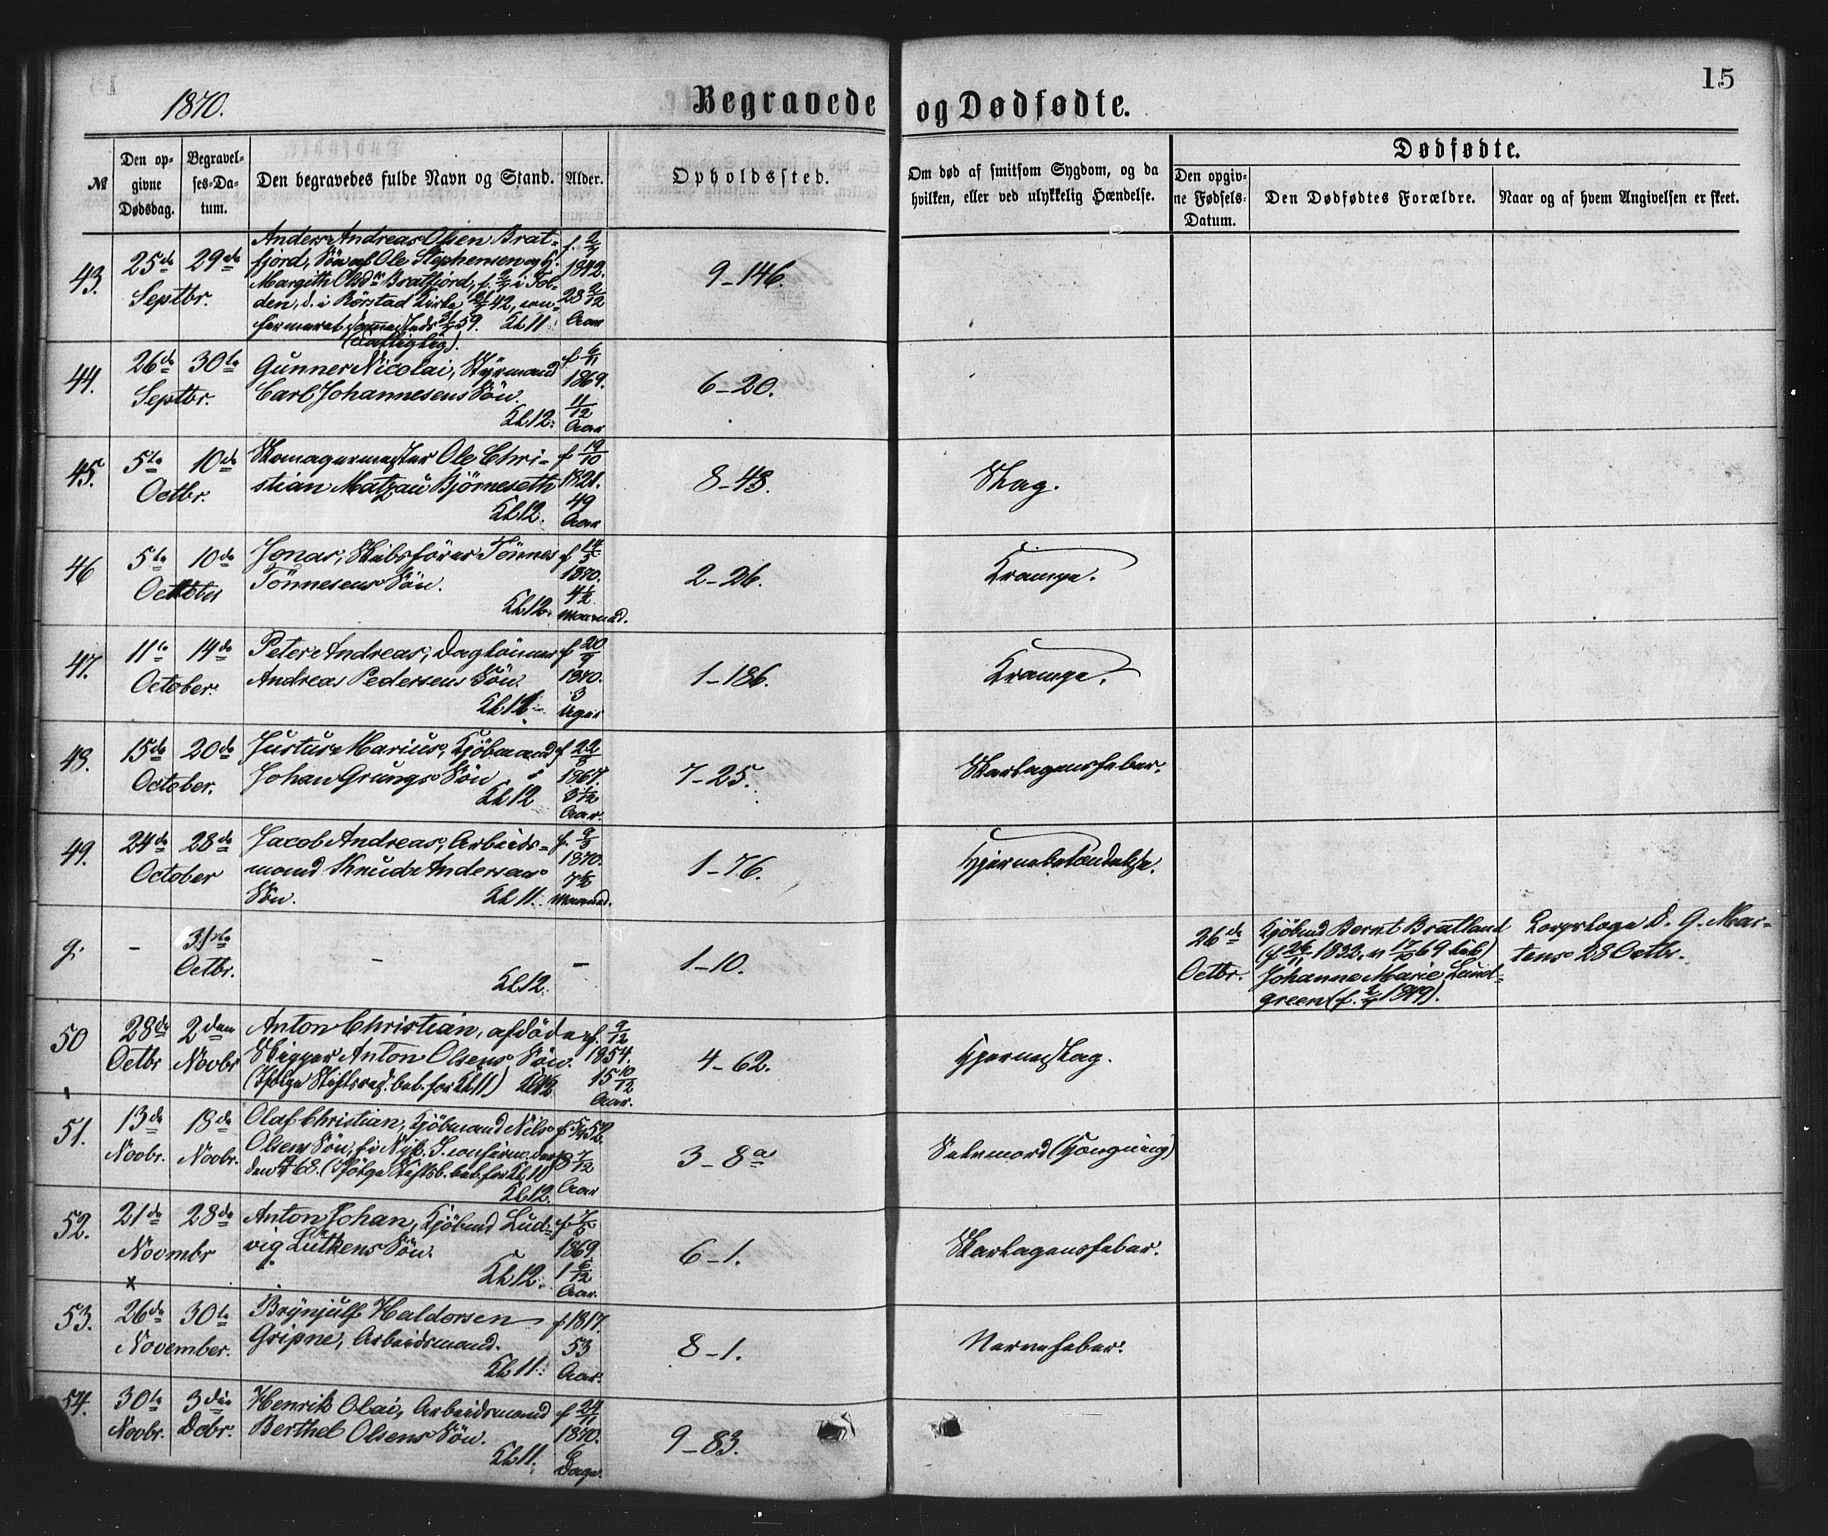 15
1870.
Begravede og Dødfødte.
№
Den opgivne Dødsdag.
Begravelses-Datum.
Den begravedes fulde Navn og Stand.
Alder.
Opholdssted.
Om død af smitsom Sygdom, og da hvilken, eller ved ulykkelig Hændelse.
Dødfødte.
Den opgivne Fødsels-Datum.
Den Dødfødtes Forældre.
Naar og af hvem Angivelsen er skeet.
43. 25de Septbr. 29de
Anders Andreas Olsen Brat-
fjord, Søn af Ole Stephensen og
Margith Olsdr Bratfjord, f. 2/7 i
den, d. i Kirke 42, con-
firmeret sammesteds 59. Kl 11
f. 2/7 1842. 28 2/12 Aar
9-146.
44. 26de Septbr. 30te
Gunner Nicolai, Styrmand
Carl Johannesens Søn.
Kl 12.
f 6/11 1869. 11/12 Aar
6-20.
45. 5te Octbr. 10de
Skomagermester Ole Chri-
stian Matzau Bjørneseth
Kl 12.
f 19/10 1821. 49 Aar
8-43.
Slag.
46 5te October 10de
Jonas, Skibsfører Tønnes
Tønnesens Søn.
Kl 12.
f 14/5 1870. 4½ Maaned.
2-26.
Krampe.
47. 11te October. 14de
Peter Andreas, Dagtønner
Andreas Pedersens Søn.
Kl 12.
f 20/9 1870. 3 Uger
1-186.
Krampe.
48. 15de October. 20de
Justus Marius, Kjøbmand
Johan Grungs Søn
Kl 12
f 22/8 1867. 3 1/12 Aar.
7-25.
Skarlagensfeber.
49. 24de October 28de
Jacob Andreas, Arbeids-
mand Knud Andersens
Søn. Kl 11.
f. 9/3 1870. 7½ Maaned.
1-76.
Hjernebetændelse.
9. - 31te Octbr.
-
Kl 12.
-
1-10.
26de Octbr.
Kjøbmd Bernt Bratland
(f 26/11 1832, v 17/10 69 bet)
Johanne Marie Lund-
green (f. 2/7 1849).
D. G. Mar-
tens 28 Octbr.
50 28de Octbr 2den Novbr
Anton Christian, afdøde
Skipper Anton Olsens Søn.
(Ifølge Stiftsres. bet. for Kl 11) Kl 12
f. 9/12 1854. 15 10/12 Aar.
4-62.
Hjerneslag.
51. 13de Novbr. 18de Novbr.
Olaf Christian, Kjøbmand Nils
Olsens Søn, f i Nyk. S. confirmeret
den 68. (Ifølge Stiftsb. bet. for Kl 11)
Kl 12.
f 52. 18 7/12 Aar
3-8a
Selvmord (Hængning)
52. 21de Novmbr 28de
Anton Johan, Kjøbmd Lud-
vig Lütkens Søn.
Kl 12.
f. 7/5 1869 1 6/12 Aar.
6-1.
Skarlagensfeber.
x
53. 26de November. 30te
Brynjulf Haldorsen
Gripne, Arbeidsmand.
Kl 11.
f 1817. 53 Aar.
8-1.
Nervefeber.
54. 30te Novbr. 3die Decbr.
Henrik Olai, Arbeidsmand
Berthel Olsens Søn.
Kl 11.
f 24/11 1870. 6 Dage.
9-83.